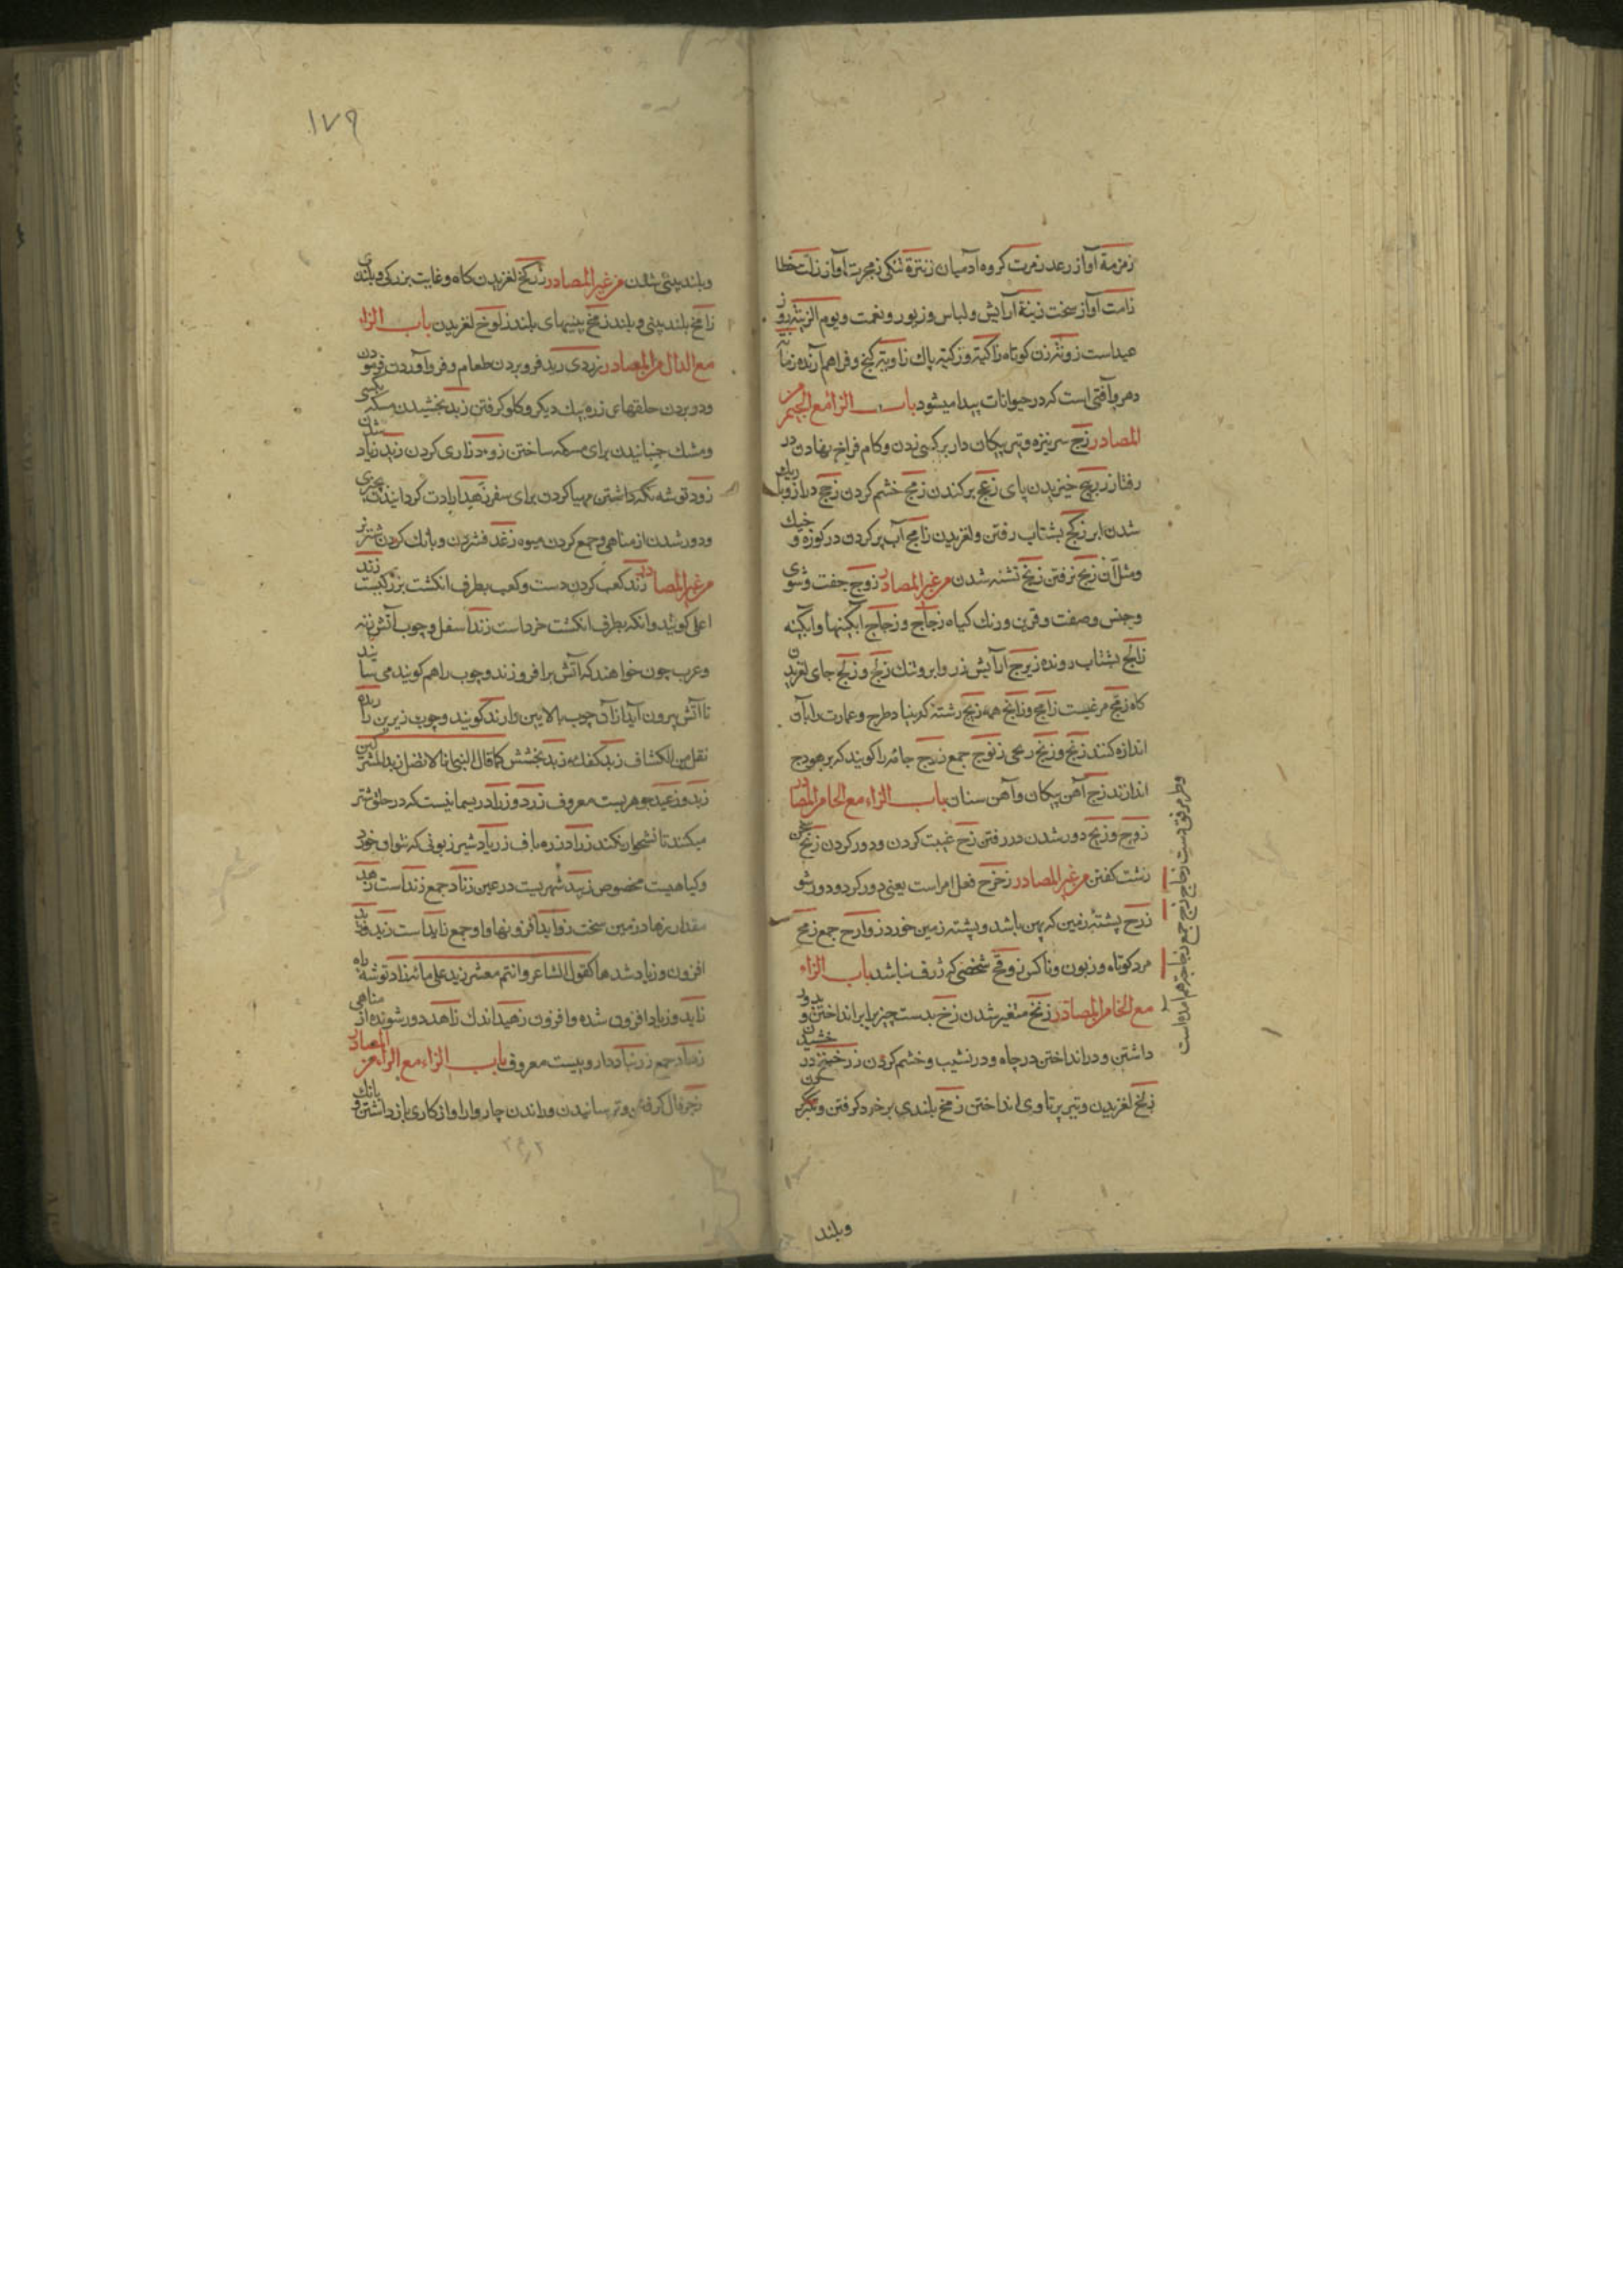 زمزمة آواز رعد زمرت کروه آدمیان زنترة تنکی زمجرت آواز زلت خطا
زامت آواز سخت زینة آرایش و لباس و زیور و نعمت و یوم الزینه روز
عیداست زونة زن کوتاه زاکیة و زکیة پاک زاویة کنج و فراهم آرنده
دهر و آفتی است که در حیوانات پیدا میشود باب الزا مع الجیم من
المصادر زج سر نیزه و تیر پیکان دار بر کسی زدن و کام فراخ نهادن در
رفتار زبج خیزیدن پای زعج برکندن زمج خشم کردن زجج دراز و باریک
شدن ابرو زلج بشتاب رفتن و لغزیدن زامج آب پر کردن در کوزه و خیک
و مثل آن زیج نرفتن زنج تشنه شدن من غیر المصادر زوج جفت و شوی
و جنس و صفت و قرین و رنک کیاه زجاج و زجاج آبکینها و آبکینه
زالج بشتاب رونده زبرج آرایش زر و ابر و تنک زلج و زلج جای لغزیدن
کاه زمج مرغیست زامج و زانج همه زیج رشته که بنا طرح و عمارت را بآن
اندازه کنند زنج و زنج رمحی زنوج جمع زوج جامه را کویند که بر هودج
اندازند زج آهن پیکان و آهن سنان باب الزاء مع الحا من المصادر
زوج و زیح دور شدن در رفتن زح غیبت کردن و دور کردن زنح سخن
زشت کفتن من غیر المصادر زحزح فعل امر است یعنی دور کرد و دور شو
زرح پشته زمین که پهن باشد و پشته زمین خورد زوارح جمع زمح
مرد کوتاه و زبون و ناکس زوقح شخصی که ژرف نباشد باب الزاء
مع الخا من المصادر زنخ متغیر شدن زخ بدست چیز برابر انداختن و بدور
داشتن و در انداختن در چاه و در نشیب و خشم کردن زخیخ درخشیدن
زلخ لغزیدن و تیر پرتاوی انداختن زمخ بلندی بر خرد کرفتن و تکبر
و طرف مرفق دست زجاج زجج جمع زجاجة هم آمده است
وبلند
۱۷۹
وبلند بینی شدن من غیر المصادر زلخ لغزیدن کاه و غایت بزرکی و بلندی
زامخ بلند بینی و بلند زمخ بینیهای بلند زلوخ لغزیدن باب الزاء
مع الدال من المصادر زردی رید فرو بردن طعام و فرو آوردن فرمودن
و دو بردن حلقهای زره بیک دیکر و کلو کرفتن زبد بخشیدن مسکه
و مشک جنبانیدن برای مسکه ساختن زود زاری کردن زید زیاد
زود توشه نکه داشتن مهیا کردن برای سفر زهید ارادت کردانیدن
و دور شدن از مناهی و جمع کردن میوه زغد فشردن و بانک کردن شتر نر
من غیر المصادر زند کعب کردن دست و کعب بطرف انکشت بزرکیست زند
اعلی کویند و انکه بطرف انکشت خرد است زند اسفل و چوب آتش زنه
و عرب چون خواهند که آتش برافروزند دو چوب را هم کویند می سایند
تا آتش بیرون آید از آن چوب بالایین را زند کویند و چوب زیرین را زنده
نقل من الکشاف زبد کفک زبد بخشش کما قال النبی انا لا نقبل زبد المشرکین
جوهریست معروف زرد و زراد ریسمانیست که در حلق شتر
میکنند تا نشخوار نکند زراد زره باف زریاد شیر زبونی که نتوان خورد
و کیاهیست مخصوص زبید شهریست در عین زناد جمع زند است زهد
مقدار زهاد زمین سخت زواید افزونها و او جمع زاید است زید
افزون و زیاد شدها کقول الشاعر و انتم معشر زید علی مائة زاد توشه راه
زاید و زیاد افزون شده و افزون زهید اندک زاهد دور شونده از مناهی
زهاد جمع زرنباد داروییست معروف باب الزاء مع الرا من المصادر
زجر فال کرفتن و ترسانیدن و راندن چاروا را و از کاری باز داشتن و بانک